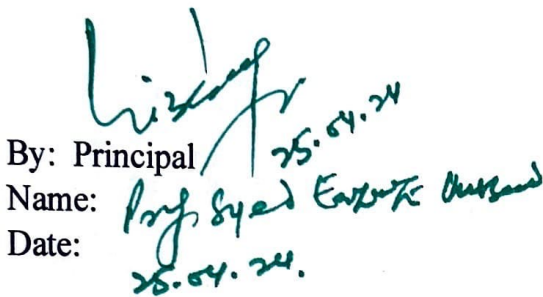 By: Principal
25.04.24
Name: Prof. Syed
Date:
25.04.24.